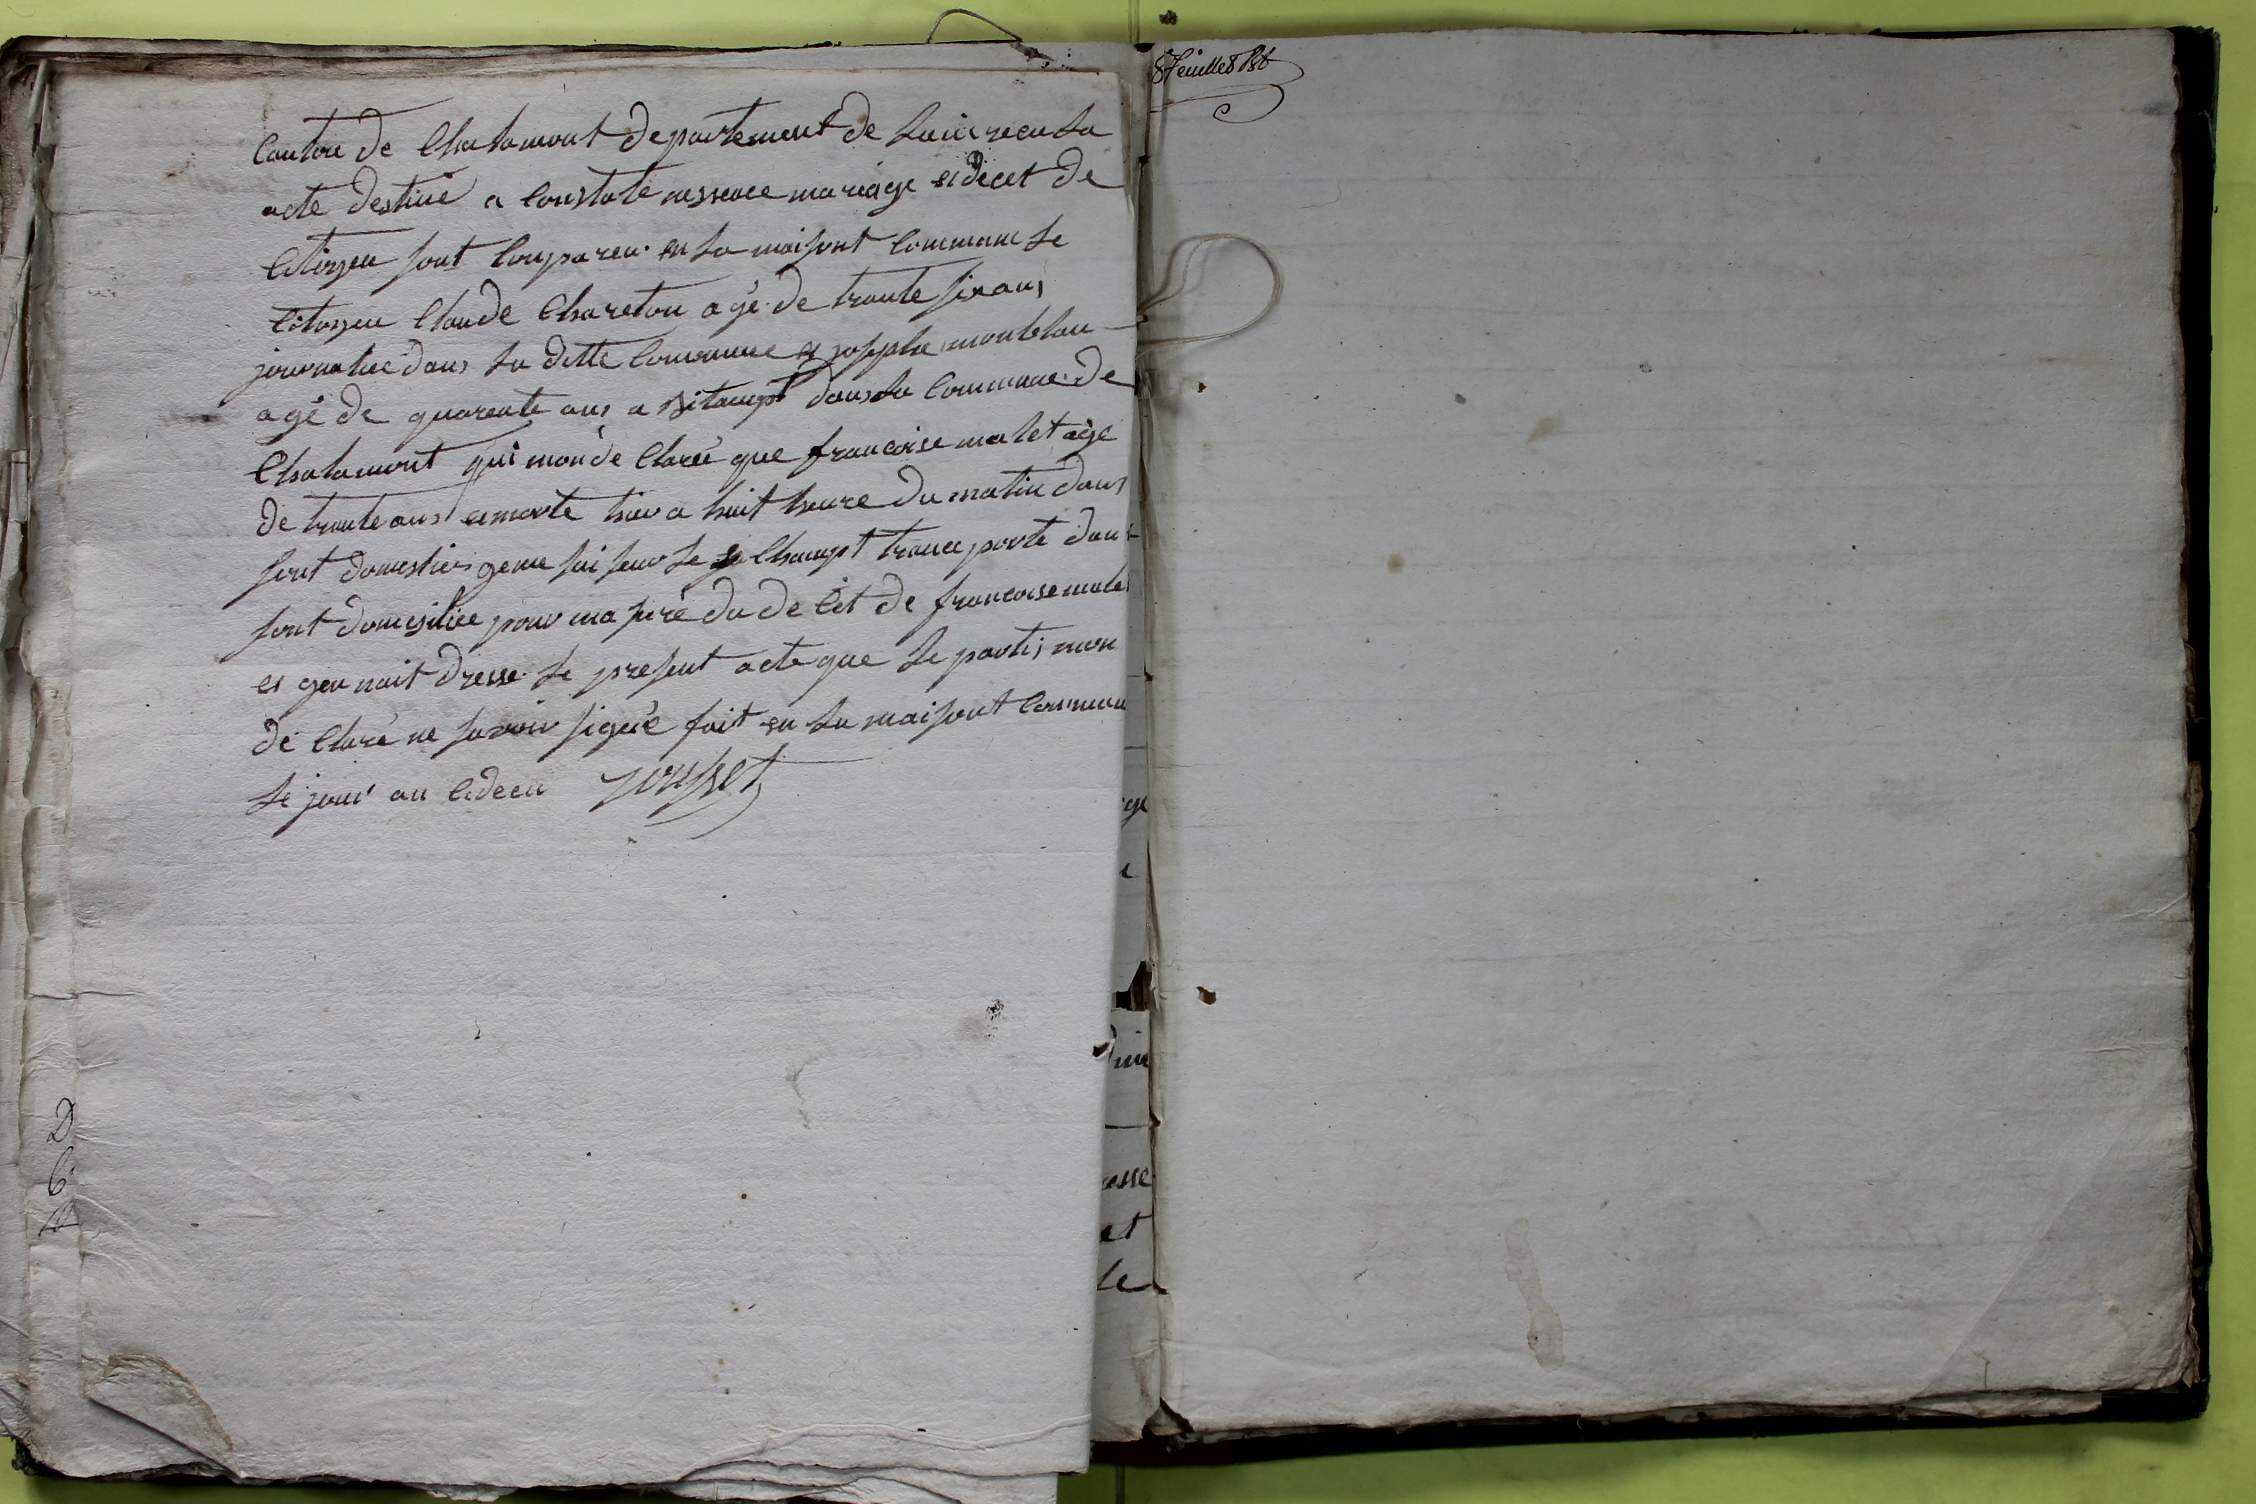 Canton de Chalamont departement de Lain recu La
acte destiné a Constate nessence mariage et decet de
Citoyen sont Conpareu en La maisont Commune Le
Citoyen Claude Chareton agé de trante six ans
journalié dans La ditte Commune et joseph montelau
agé de quarente ans a dans La Commune de
Chalamont qui mon dé Claré que francoise malet agé
de trante ans et morte hier a huit heure du matin dans
sont domesties geme sui seur Le Champt trance porté dans
sont domesilie pour ma suré du de Cét de francoise malet
et gen nait dresse Le present acte que Le partis mon
dé Claré ne savoir signié fait en La maisont Commun
Le jour an Cideçu Jousset
8 feuillets
D
6
ge
mi
esse
et
le